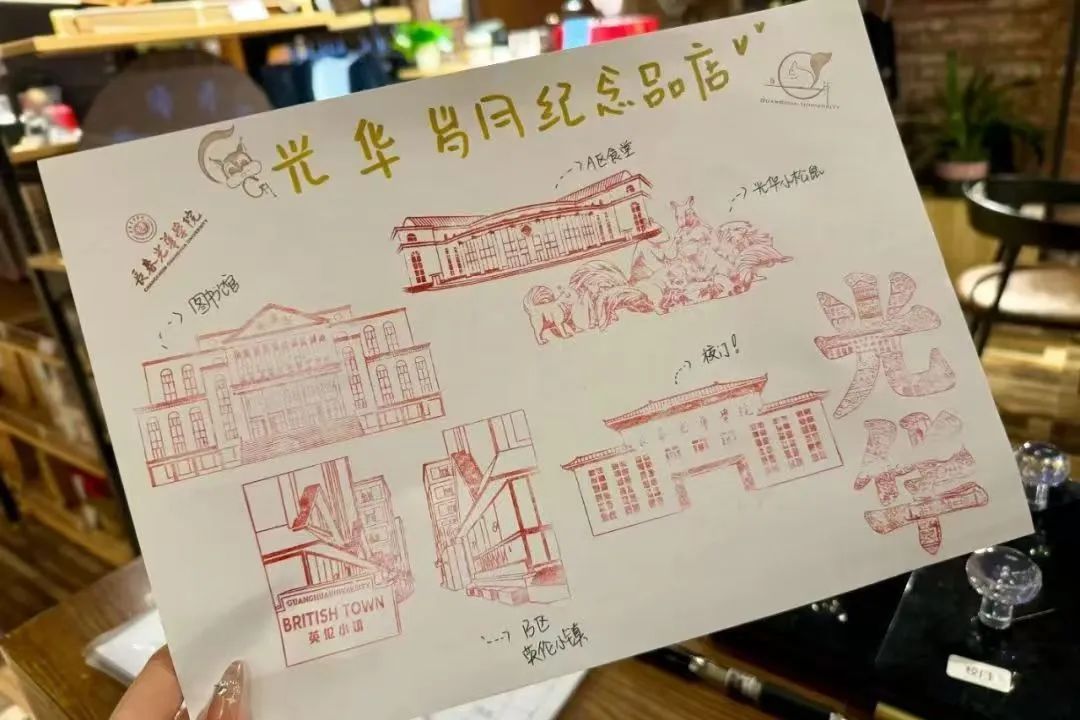 光华岁月纪念品店
GUANGHUA UNIVERSITY
长春光华学院
CHANGCHUN GUANGHUA UNIVERSITY
A区食堂
光华小松鼠
图书馆
校门!
长春光华学院
光华
GUANGHUA UNIVERSITY
BRITISH TOWN
英伦小镇
B区
英伦小镇
校门